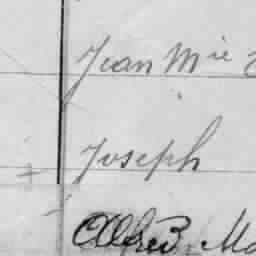 Jean Mie
Joseph
Alfred Ma